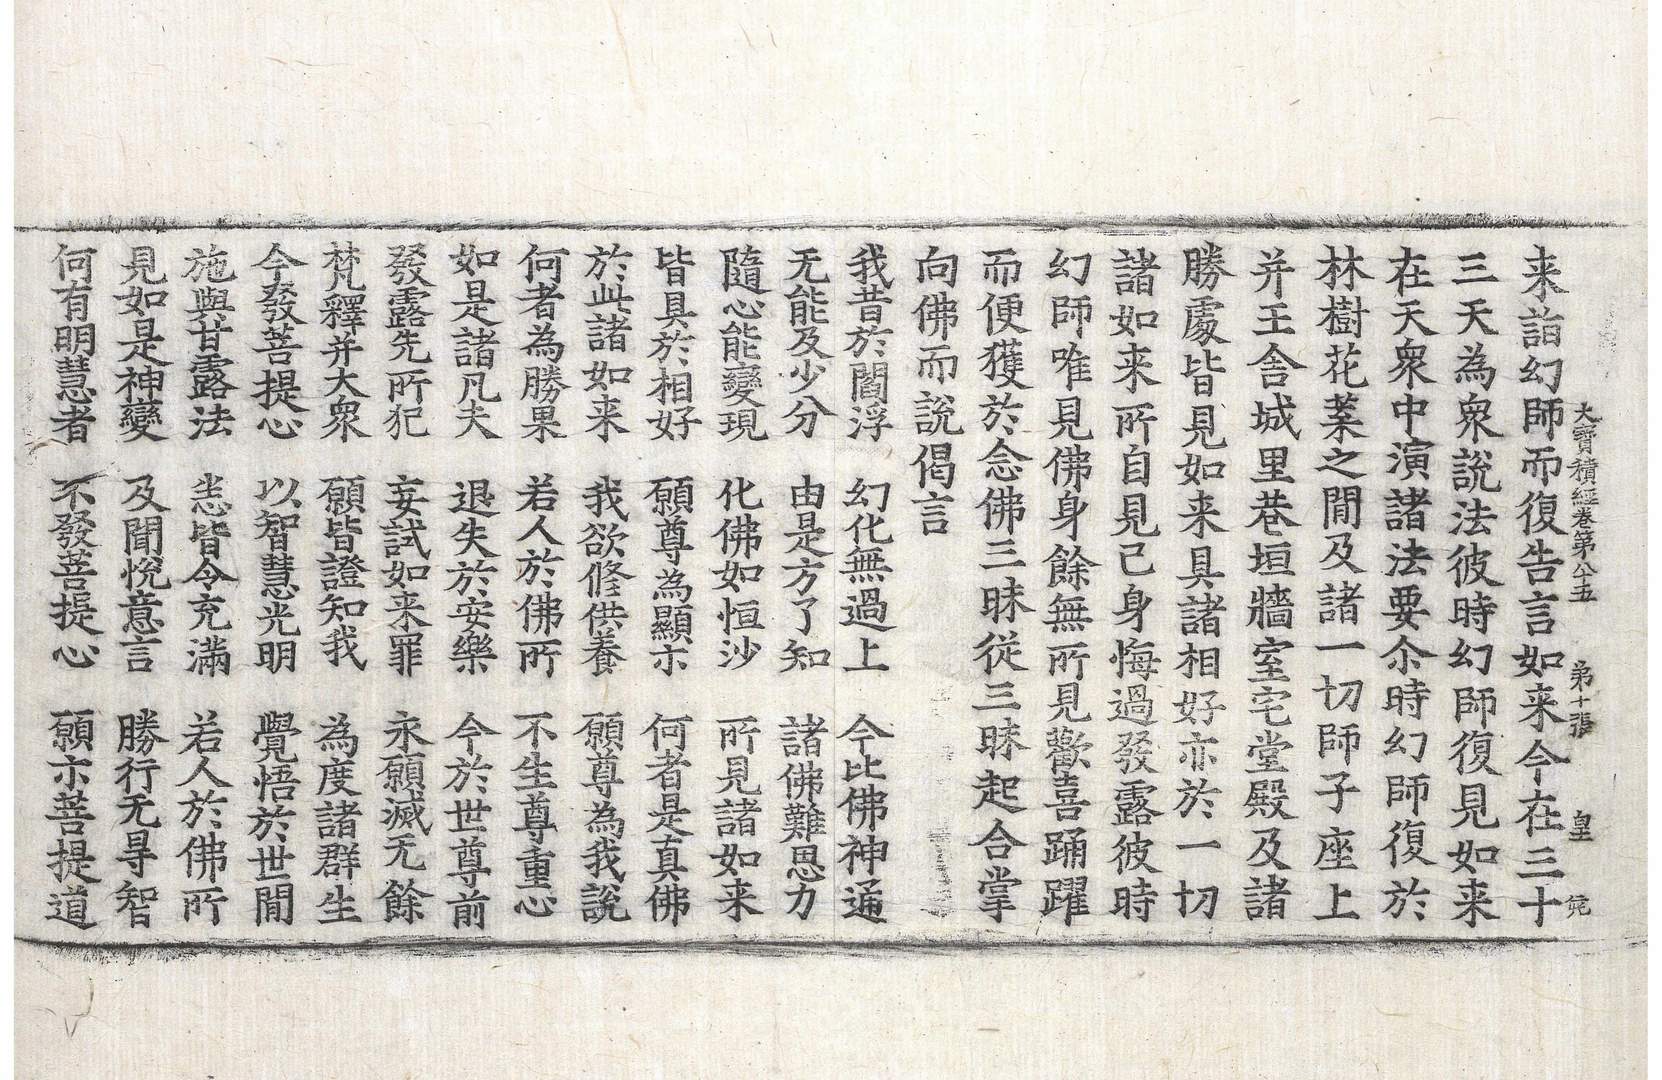 大寶積經卷第八十五 第十張 皇
来詣幻師而復告言如来今在三十
三天為衆說法彼時幻師復見如来
在天衆中演諸法要尒時幻師復於
林樹花葉之閒及諸一切師子座上
并王舍城里巷垣牆室宅堂殿及諸
勝處皆見如来具諸相好亦於一切
諸如来所自見己身悔過發露彼時
幻師唯見佛身餘無所見歡喜踊躍
而便獲於念佛三昧從三昧起合掌
向佛而說偈言
我昔於閻浮 幻化無過上 今比佛神通
无能及少分 由是方了知 諸佛難思力
隨心能變現 化佛如恒沙 所見諸如来
皆具於相好 願尊為顯示 何者是真佛
於此諸如来 我欲修供養 願尊為我說
何者為勝果 若人於佛所 不生尊重心
如是諸凡夫 退失於安樂 今於世尊前
發露先所犯 妄試如来罪 永願滅无餘
梵釋并大衆 願皆證知我 為度諸群生
今發菩提心 以智慧光明 覺悟於世閒
施與甘露法 悉皆令充滿 若人於佛所
見如是神變 及聞悅意言 勝行无㝵智
何有明慧者 不發菩提心 願示菩提道